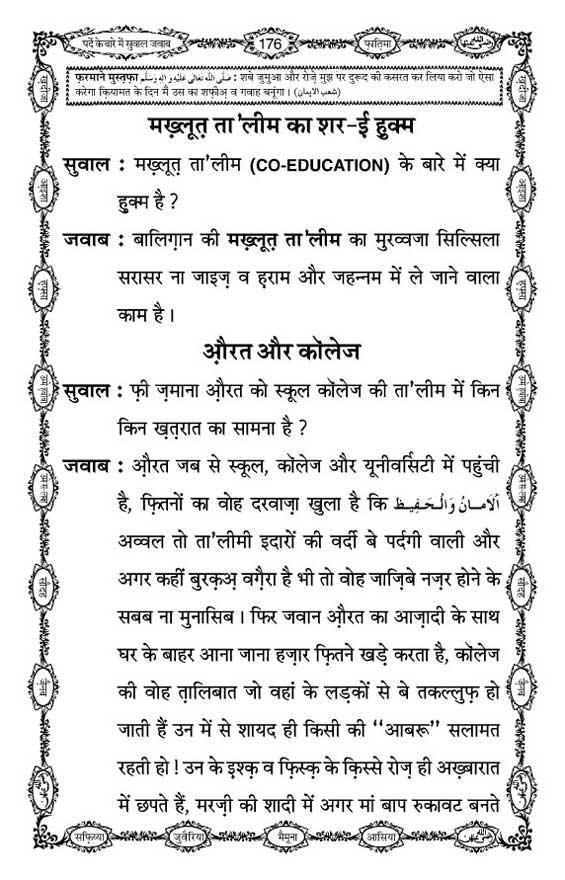 पर्दे के बारे में सुवाल जवाब
176
फ़ातिमा
फ़रमाने मुस्तफ़ा صَلَّى اللّٰه تَعَالٰى عَلَيْهِ وَاٰلِهٖ وَسَلَّم : शबे जुमुआ और रोज़े मुझ पर दुरूद की कसरत कर लिया करो जो ऐसा
करेगा क़ियामत के दिन मैं उस का शफ़ीअ़ व गवाह बनूंगा। (شعب الایمان)
मख़्लूत़ ता'लीम का शर-ई ह़ुक्म
सुवाल : मख़्लूत़ ता'लीम (CO-EDUCATION) के बारे में क्या
ह़ुक्म है ?
जवाब : बालिग़ान की मख़्लूत़ ता'लीम का मुरव्वजा सिल्सिला
सरासर ना जाइज़ व ह़राम और जहन्नम में ले जाने वाला
काम है ।
औ़रत और कॉलेज
सुवाल : फ़ी ज़माना औ़रत को स्कूल कॉलेज की ता'लीम में किन
किन ख़त़रात का सामना है ?
जवाब : औ़रत जब से स्कूल, कॉलेज और यूनीवर्सिटी में पहुंची
है, फ़ितनों का वोह दरवाज़ा खुला है कि اَلْاَمَانُ وَالْحَفِیظ
अव्वल तो ता'लीमी इदारों की वर्दी बे पर्दगी वाली और
अगर कहीं बुरक़अ़ वग़ैरा है भी तो वोह जाज़िबे नज़र होने के
सबब ना मुनासिब । फिर जवान औ़रत का आज़ादी के साथ
घर के बाहर आना जाना हज़ार फ़ितने खड़े करता है, कॉलेज
की वोह त़ालिबात जो वहां के लड़कों से बे तकल्लुफ़ हो
जाती हैं उन में से शायद ही किसी की ‘‘आबरू’’ सलामत
रहती हो ! उन के इ़श्क़ व फ़िस्क़ के क़िस्से रोज़ ही अख़्बारात
में छपते हैं, मरज़ी की शादी में अगर मां बाप रुकावट बनते
सफ़िय्या
जुवैरिया
मैमूना
आसिया